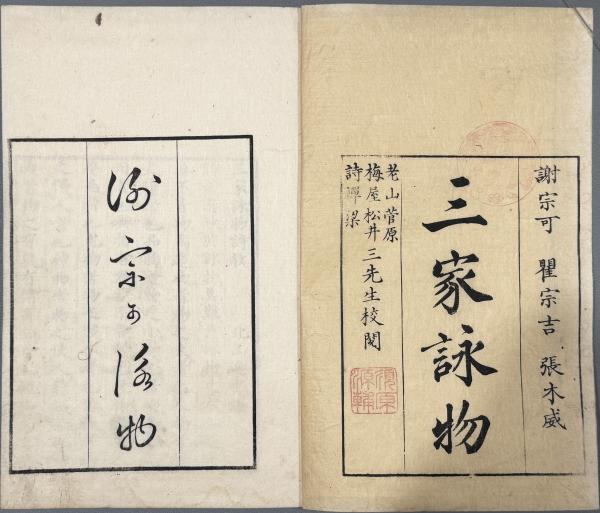 謝宗可 瞿宗吉 張木威
三家詠物
老山 菅原
梅屋 松井 三先生校閱
詩禪 梁
謝宗可詠物